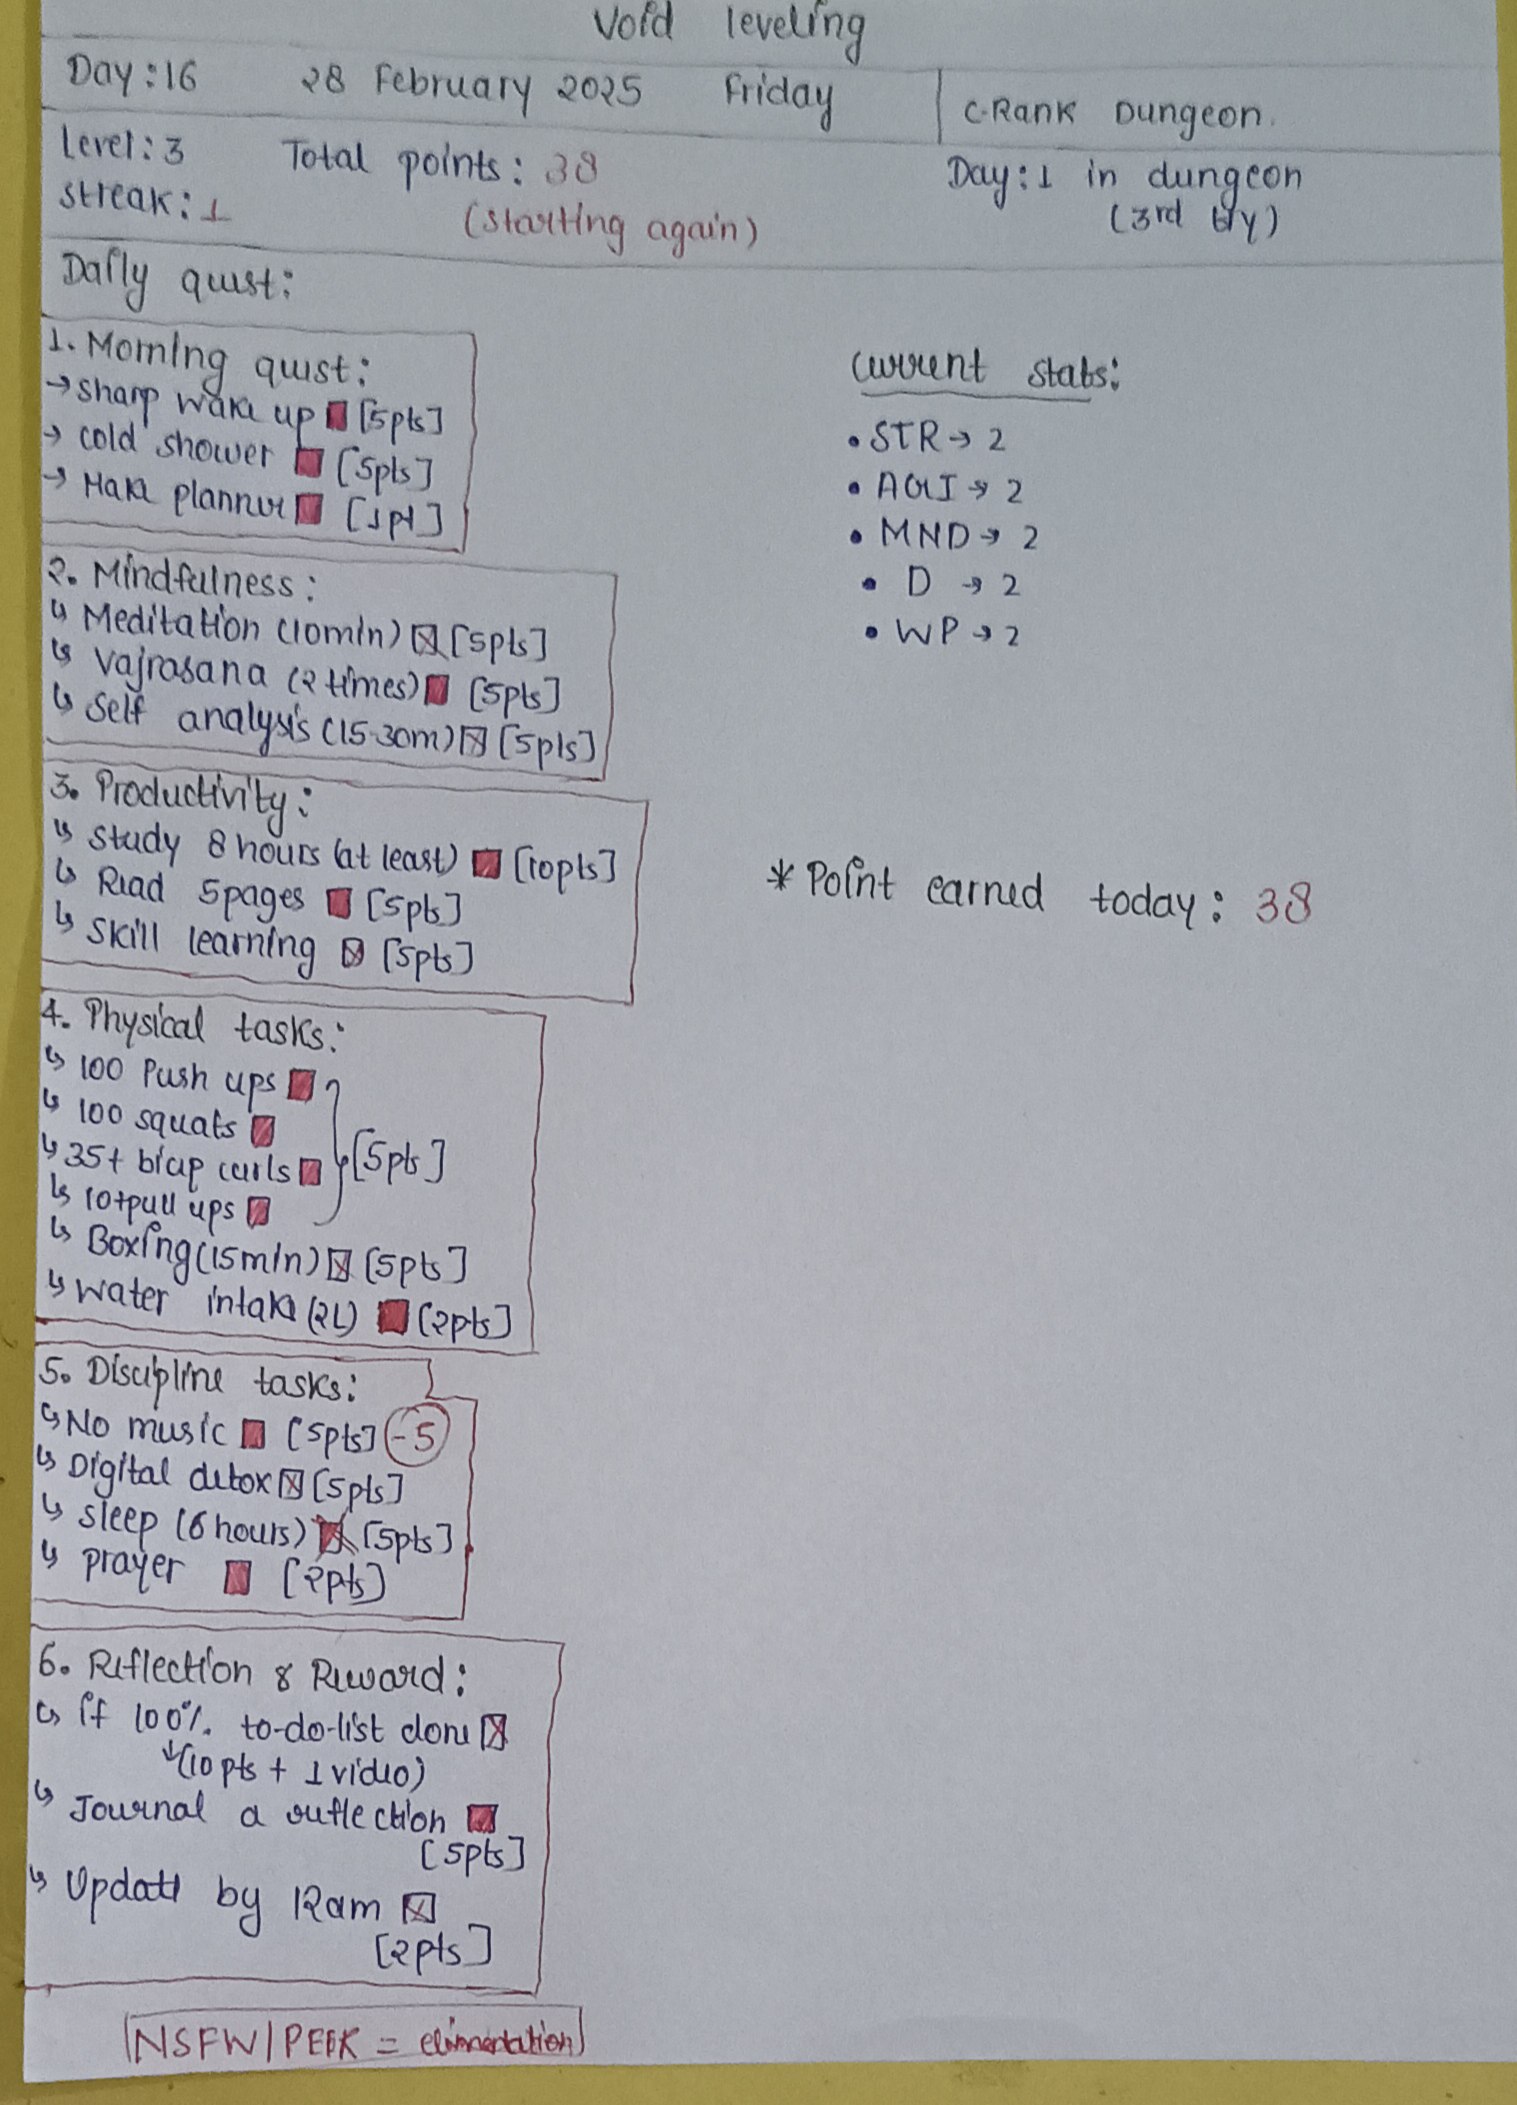 Void leveling
Day:16 28 February 2025 Friday
C-Rank Dungeon.
Level:3 Total points: 38
Streak:1 (starting again)
Day:1 in dungeon
(3rd try)
Daily quest:
1. Morning quest:
→ Sharp wake up [5pts]
→ cold shower [5pts]
→ Make planner [1pt]
2. Mindfulness:
↳ Meditation (10min) [5pts]
↳ Vajrasana (2 times) [5pts]
↳ Self analysis (15-30m) [5pts]
3. Productivity:
↳ Study 8 hours (at least) [10pts]
↳ Read 5pages [5pts]
↳ Skill learning [5pts]
4. Physical tasks:
↳ 100 Push ups
↳ 100 squats
↳ 35+ bicep curls [5pts]
↳ 10+pull ups
↳ Boxing (15min) [5pts]
↳ Water intake (2L) [2pts]
5. Discipline tasks:
↳ No music [5pts] -5
↳ Digital detox [5pts]
↳ Sleep (6 hours) [5pts]
↳ prayer [2pts]
6. Reflection & Reward:
↳ if 100% to-do-list done
↓(10 pts + 1 video)
↳ Journal a reflection
[5pts]
↳ Update by 12am
[2pts]
NSFW/PEEK =
Current stats:
• STR → 2
• AGI → 2
• MND → 2
• D → 2
• WP → 2
* Point earned today: 38